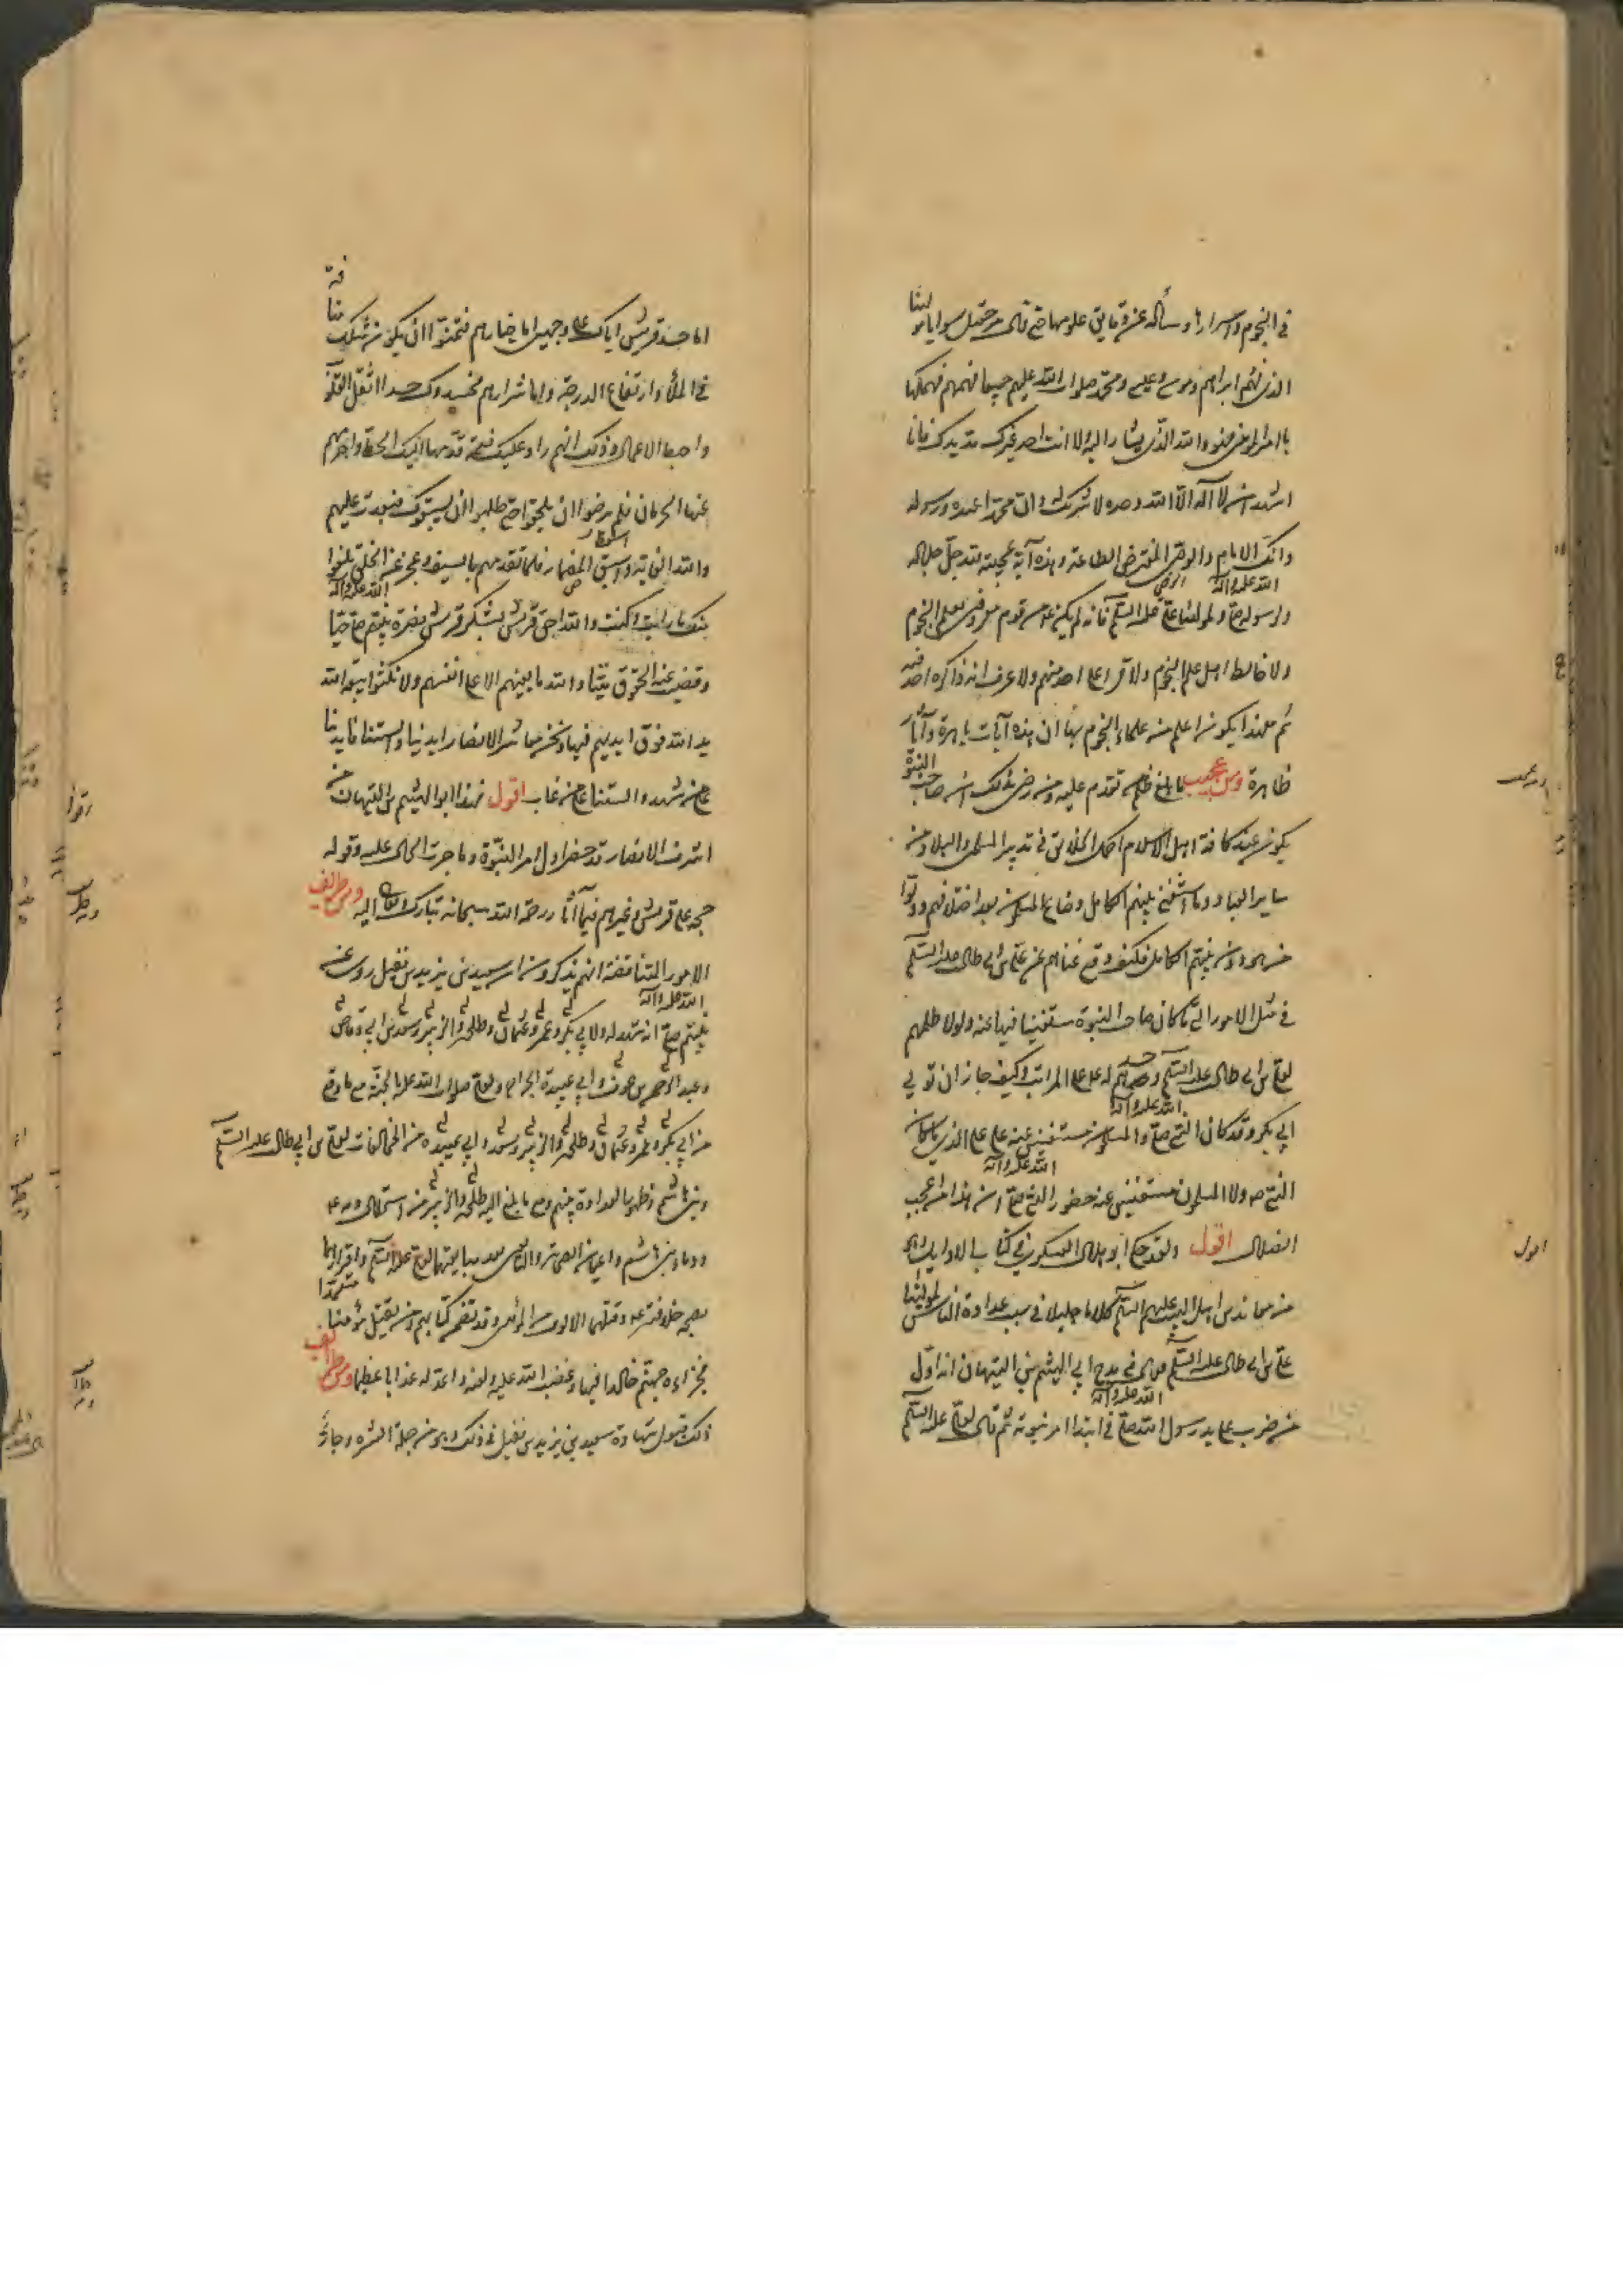 في النجوم واسرارها وسأله عن دقايق علومها حتى قال من قبل سوايا مولينا
الذي لهم ابراهيم وموسى وعيسى ومحمد صلوات الله عليهم جميعا فهمهم فهمكها
يا امير المؤمنين هو والله الذي يشار اليه ولا انت احد غيرك مد يدك فانا
اشهد ان لا اله الا الله وحده لا شريك له وان محمدا عبده ورسوله
وانك الامام والوصي المفترض الطاعة وهذه آية عجيبة لله جل جلاله
ولرسوله صلى الله عليه وآله ولمولينا على عليه السلم فانه لم يكن من قوم معرفين بعلم النجوم
ولا خالط اهل علم النجوم ولا قرأ على احد منهم ولا عرف انه ذاكره احد فيه
ثم مع هذا يكون اعلم من علماء النجوم بها ان هذه آيات باهرة وآثار
ظاهرة ومن عجيب ما بلغ ظلم من تقدم عليه ومن رضي بذلك ان صاحب النبوة
يكون عند كافة اهل الاسلام اكمل الخلايق في تدبير المسلمين والبلاد ومن
ساير العباد وما استغنى بينهم الكامل وضاع المسلمون بعد اختلافهم وودوا
من هو دون نبيهم الكامل فكيف وقع غناهم عن علي بن ابي طالب عليه السلم
في مثل الامور التي كان صاحب النبوة مستغنيا فيها عنه ولولا ظلمهم
لعلي بن ابي طالب عليه السلم وحسدهم له على على المراتب وكيف جاز ان تولي
ابي بكر وقد كان النبي صلى الله عليه وآله والمسلمون مستغنين عنه على على الذي ما كان
النبي صه ولا المسلمون مستغنين عنه حضور النبي صلى الله عليه وآله ان هذا من اعجب
الضلال اقول ولقد حكى ابو هلال العسكري في كتاب الاوايل وهو
من معاندي اهل البيت عليهم السلم كلاما جليلا في سبب عداوة الناس لمولينا
علي بن ابي طالب عليه السلم فقال في مدح ابي الهيثم بن التيهان انه اول
من ضرب على يد رسول الله صلى الله عليه وآله في ابتداء امر نبوته ثم قال لعلي عليه السلم
اما حسد قريش اياك على وجهين اما خيارهم فتمنوا ان يكونوا مثلك منافسة
في الملأ وارتفاع الدرجة واما شرارهم فحسدوك حسدا اثقل القلوب
واحبط الاعمال وذلك انهم رأوا عليك نعمة قدمها اليك الحظ واخرهم
عنها الحرمان فلم يرضوا ان يلحقوا حتى طلبوا ان يسبقوك فبعدت عليهم
والله الغاية واسقط المضمار فلما تقدمتهم بالسبق وعجزوا عن اللحاق بلغوا
منك ما رأيت وكنت والله احق قريش بشكر قريش نصرة نبيهم صلى الله عليه وآله حيا
وقضيت عنه الحقوق ميتا والله ما بغيهم الا على انفسهم ولا نكثوا الا بيعة الله
يد الله فوق ايديهم فيها ونحن معاشر الانصار ايدينا والسنتنا فايدينا
على من شهد والسنتنا على من غاب اقول فهذا ابو الهيثم بن التيهان من
اشراف الانصار قد حضر اول امر النبوة وما جرت الحال عليه وقوله
حجة على قريش وغيرهم فيما آثار رحمة الله سبحانه تبارك وتعالى اليه ومن طرايف
الامور المتناقضة انهم يذكرون ان سعيد بن زيد بن نفيل روى عن
نبيهم صلى الله عليه وآله انه شهد له ولابي بكر وعمر وعثمان وطلحة والزبير وسعد بن ابي وقاص
وعبد الرحمن بن عوف وابي عبيدة الجراح ولعلي صلوات الله عليه بالجنة مع ما وقع
من ابي بكر وعمر وعثمان وطلحة والزبير وسعد وابي عبيدة من المخالفات لعلي بن ابي طالب عليه السلم
وبني هاشم وظهور العداوة بينهم ومع ما بلغ اليه طلحة والزبير من استحلال دمه
ودماء بني هاشم واعيان الصحابة والتابعين بعد مبايعتهما لعلي عليه السلم واقرارهما
بصحة خلافته وقتلهما الالوف من المؤمنين وقد تضمن كتابهم ومن يقتل مؤمنا متعمدا
فجزاءه جهنم خالدا فيها وغضب الله عليه ولعنه واعد له عذابا عظيما ومن طرايف
ذلك قبول شهادة سعيد بن زيد بن نفيل في ذلك وهو من جملة العشرة وجاز